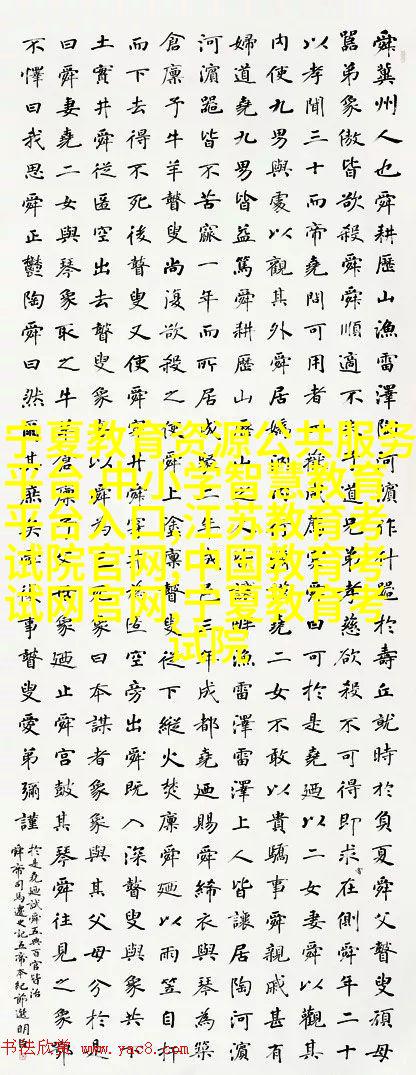 舜冀州人也舜耕歷山漁雷澤陶河濱作什器於壽丘就時於負夏舜父瞽叟頑母
嚚弟象傲皆欲殺舜舜順適不失子道兄弟孝慈欲殺不可得即求嘗在側舜年二十
以孝聞三十而帝堯問可用者四嶽咸薦虞舜曰可於是堯迺以二女妻舜以觀其
內使九男與處以觀其外舜居媯汭內行彌謹堯二女不敢以貴驕事舜親戚甚有
婦道堯九男皆益篤舜耕歷山歷山之人皆讓畔漁雷澤雷澤上人皆讓居陶河濱
河濱器皆不苦窳一年而所居成聚二年成邑三年成都堯迺賜舜絺衣與琴為築
倉廩予牛羊瞽叟尚復欲殺之使舜上塗廩瞽叟從下縱火焚廩舜迺以兩笠自扞
而下去得不死後瞽叟又使舜穿井舜穿井為匿空旁出舜既入深瞽叟與象共下
土實井舜從匿空出去瞽叟象喜以舜為已死象曰本謀者象象與其父母分於是
曰舜妻堯二女與琴象取之牛羊倉廩予父母象迺止舜宮鼓其琴舜往見之象鄂
不懌曰我思舜正鬱陶舜曰然爾其庶矣舜復事瞽叟愛弟彌謹
於是堯迺試舜五典百官皆治
舜帝司馬遷史記五帝本紀節選明
宁夏教育资源公共服务
平台,中小学智慧教育
平台入口,江苏教育考
试院官网,中国教育考
试网官网,宁夏教育考
试院
书法欣赏 www.yac8.com